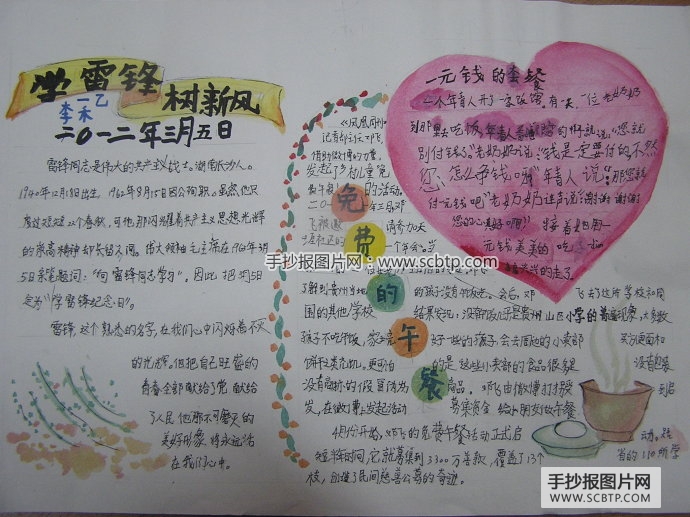 学雷锋
树新风
李一禾
二0一二年三月五日
雷锋同志是伟大的共产主义战士。湖南长沙人。
1940年12月18日出生，1962年8月15日因公殉职。虽然他只
度过短短22个春秋，可他那闪耀着共产主义思想光辉
的崇高精神却长留不同。伟大领袖毛主席在1963年3月
5日亲笔题词："向雷锋同志学习"。因此把3月5日
定为"学雷锋纪念日"。
雷锋，这个熟悉的名字，在我们心中闪烁着不灭
的光辉。他把自己旺盛的
青春全部献给了党，献给
了人民，他那不可磨灭的
美好形象将永远活
在我们心中。
一元钱的套餐
一个年青人开了一家饭馆。有一天，一位老奶奶
到那里去吃饭，年青人
说："您就
别付钱了。"老奶奶说："钱是一定要付的，不然
您怎么争钱啊"年青人说："那您就
付一元钱吧"老奶奶
说："谢谢！谢谢
您的心真好啊"接着奶奶用一
元钱美美的吃
走了。
免费的午餐
《凤凰周刊》
记者部主任邓飞，
借助微博的力量，
发起了乡村儿童免
的活动。
了解到贵州当地
的孩子没有午饭吃。会后，邓飞去了这所学校和周
围的其他学校
结果发现：没有
贵州山区小学的普遍现象，大多数
孩子不吃午饭，家境
好一些的孩子，会去周边的小卖部
买方便面和
饼干类充饥，更可怕
的是这些小卖部的食品很多是
没有
商品。邓飞由微博打
发，在微博上发起活动
募集资金给小朋友做午餐
4月份开始，邓飞的免费午餐活动正式启
动。
短
时间，它就募集到3300万善款，覆盖了13个
省的110所学
校，创造了民间慈善公募的奇迹。
手抄报图片网 www.scbtp.com
手抄报图片网
WWW.SCBTP.COM